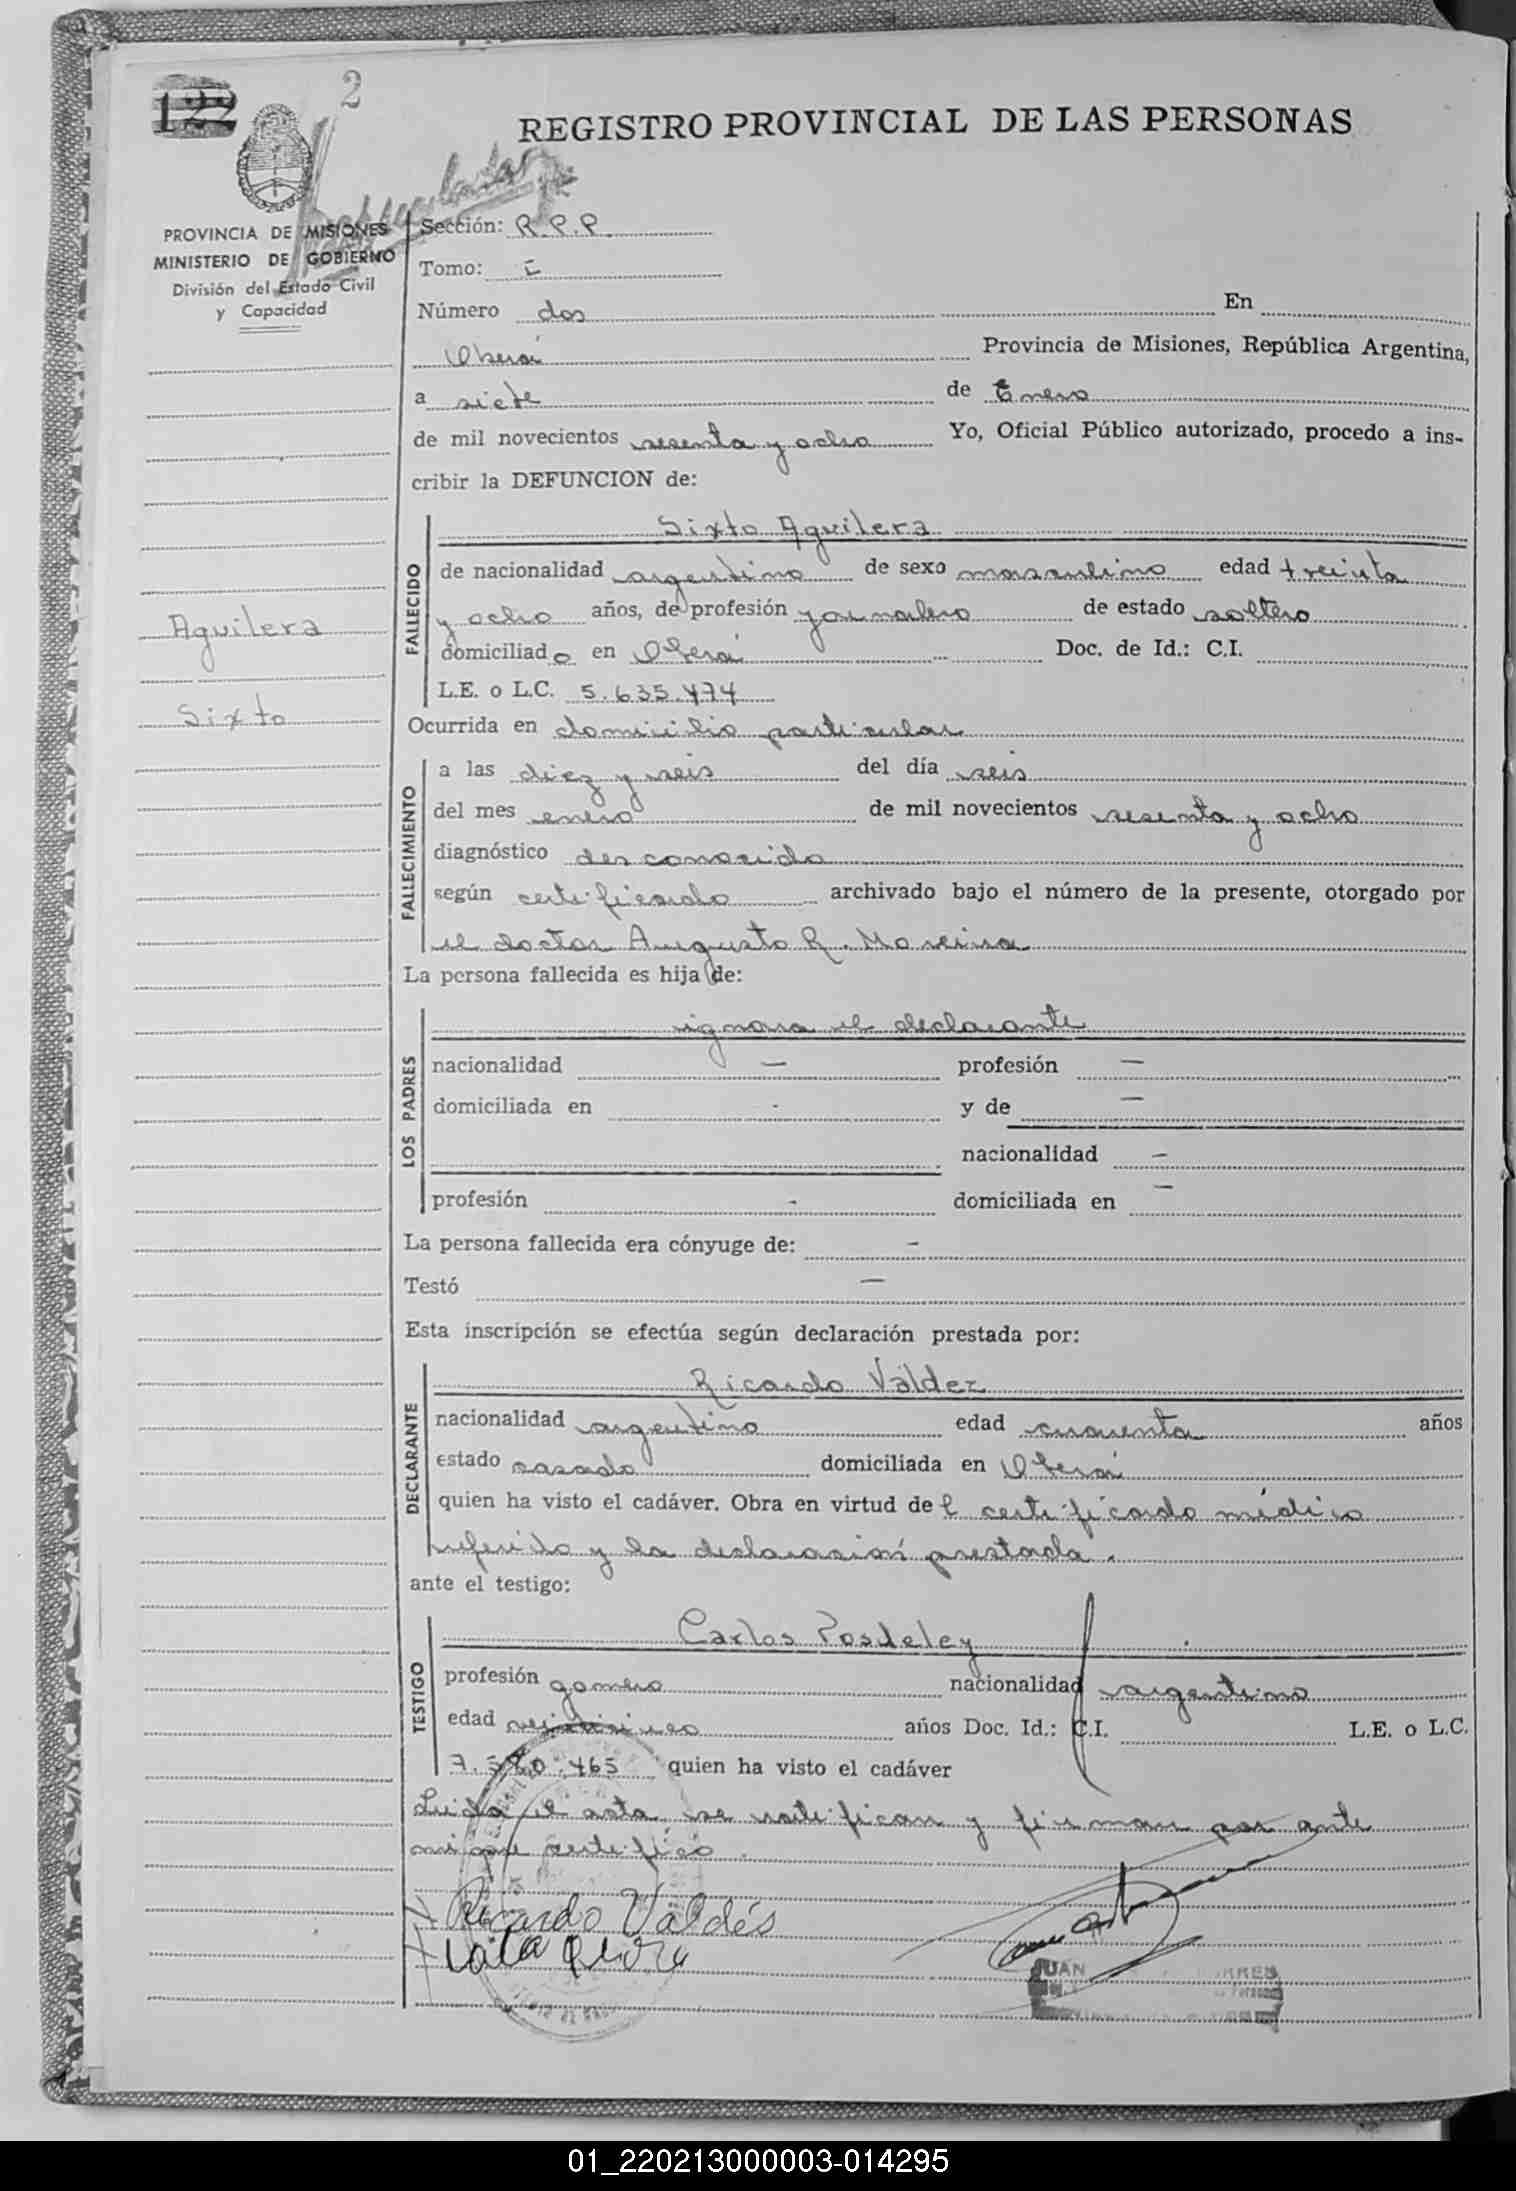 122
2
REGISTRO PROVINCIAL DE LAS PERSONAS
PROVINCIA DE MISIONES
MINISTERIO DE GOBIERNO
División del Estado Civil
y Capacidad
Sección: R.P.P.
Tomo: I
Número dos En
Oberá Provincia de Misiones, República Argentina,
a siete de Enero
de mil novecientos sesenta y ocho Yo, Oficial Público autorizado, procedo a ins-
cribir la DEFUNCION de:
Aguilera
Sixto
FALLECIDO
Sixto Aguilera
de nacionalidad argentino de sexo masculino edad treinta
y ocho años, de profesión jornalero de estado soltero
domiciliado en Oberá Doc. de Id.: C.I.
L.E. o L.C. 5.635.474
Ocurrida en domicilio particular
FALLECIMIENTO
a las diez y seis del día seis
del mes enero de mil novecientos sesenta y ocho
diagnóstico desconocido
según certificado archivado bajo el número de la presente, otorgado por
el doctor Augusto R. Moreira
La persona fallecida es hija de:
LOS PADRES
ignora el declarante
nacionalidad — profesión —
domiciliada en - y de —
nacionalidad —
profesión - domiciliada en —
La persona fallecida era cónyuge de: -
Testó —
Esta inscripción se efectúa según declaración prestada por:
DECLARANTE
Ricardo Valdez
nacionalidad argentino edad cuarenta años
estado casado domiciliada en Oberá
quien ha visto el cadáver. Obra en virtud del certificado médico
referido y la declaración prestada.
ante el testigo:
TESTIGO
Carlos Posdeley
profesión gomero nacionalidad argentino
edad años Doc. Id.: C.I. L.E. o L.C.
465 quien ha visto el cadáver
Leida el acta, se ratifican y firman por ante
mi que certifico.
Ricardo Valdés
JUAN
01_220213000003-014295